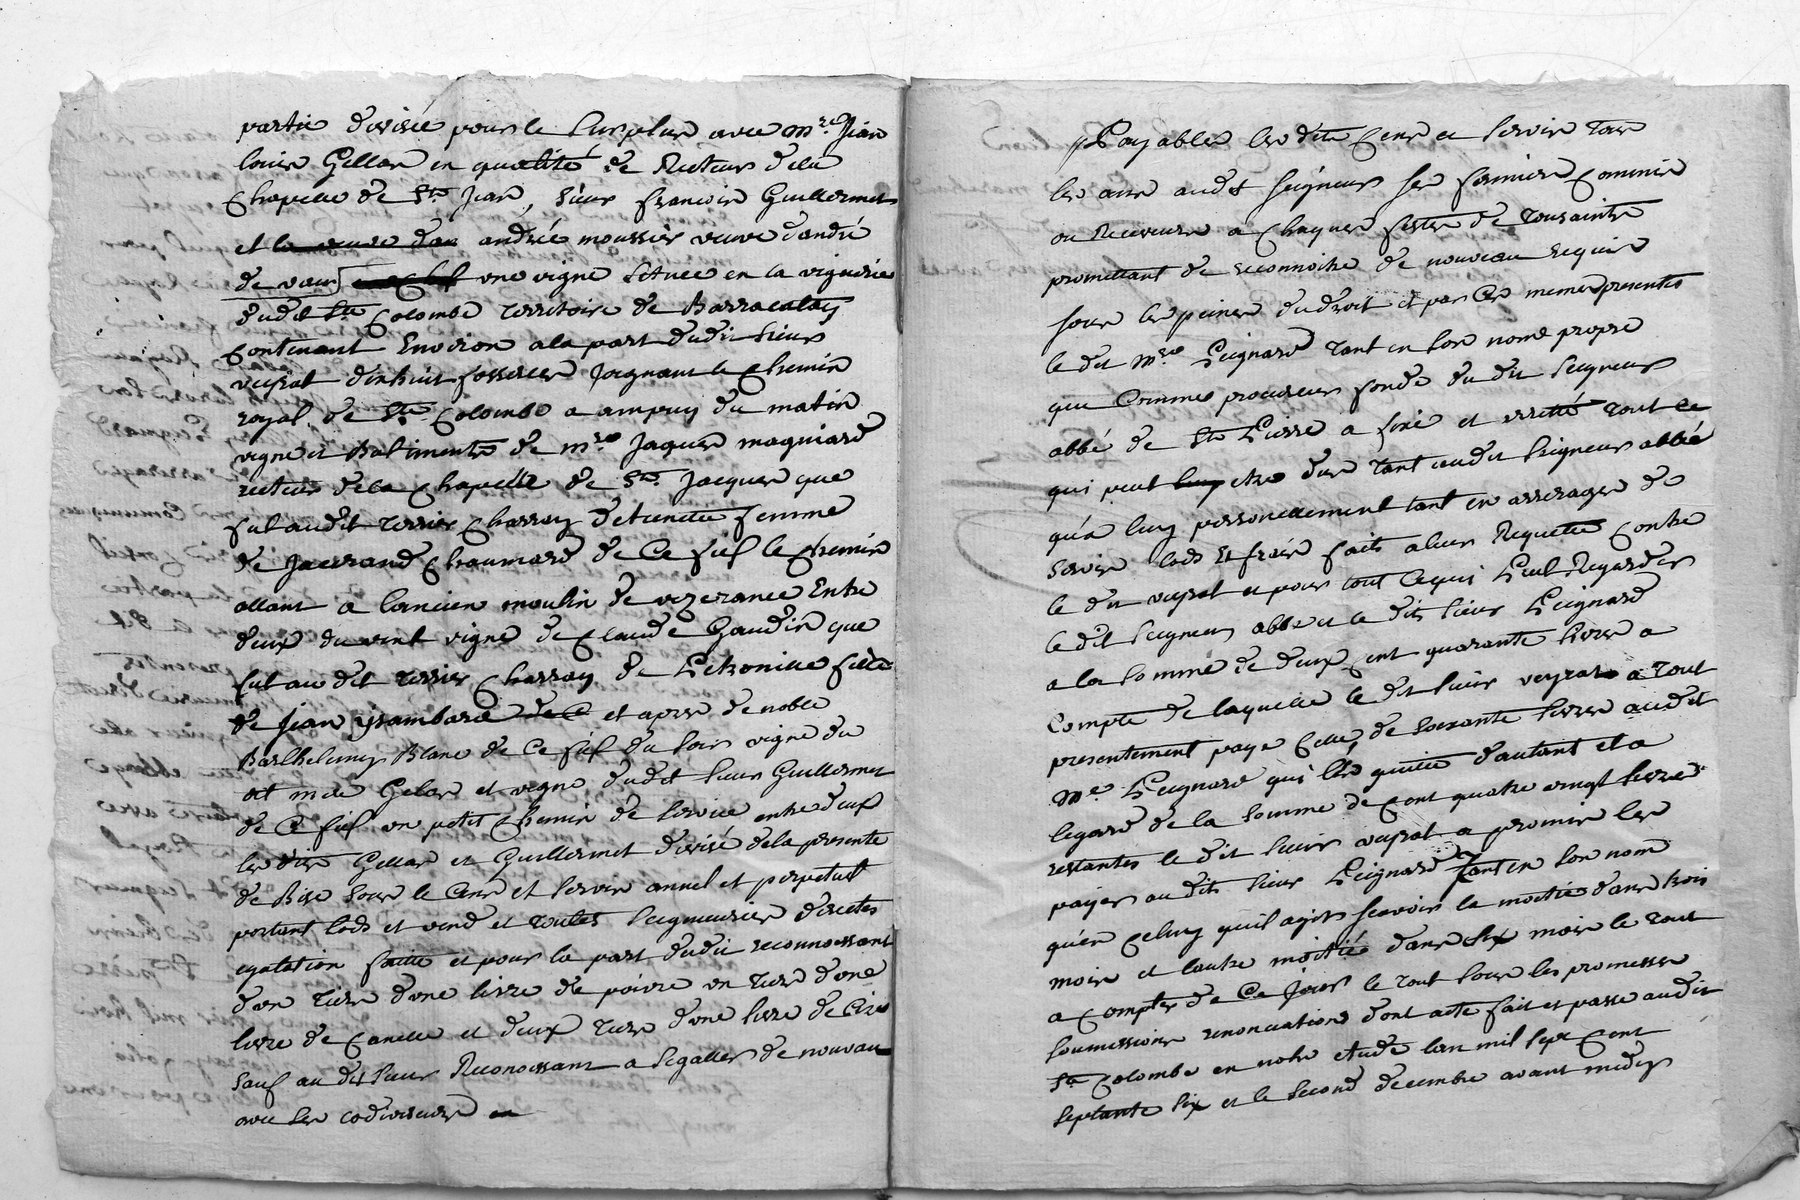 partie divisée pour le surplus avec mre Jean
louis Gellas en qualité de Recteur de la
Chapelle de St Jean, sieur francois Guillermet
et la veuve dan andrée moussier veuve d'andré
de vaux une vigne située en la viguerie
dudit Ste Colombe territoire de Barracolas
Contenant Environ a la part dudit sieur
veyrat dixhuit fosserees joignant le Chemin
royal de Ste Colombe a ampuy du matin
vigne et Batiments de mre Jaques magniard
recteur de la Chapelle de St Jacques que
fut audit terrier Charroy femme
de Chaumard de Ce fief le Chemin
allant a lancien moulin de vezerance Entre
deux du vent vigne de Claude Gaudin que
fut au dit terrier Charroy de Petronille fille
de Jean ysambard de C et apres de noble
Barthelemy Blanc de Ce fief du soir vigne du
dit mre Gelas et vigne dudit sieur Guillermet
de Ce fief un petit Chemin de service entre deux
les dits Gellas et Guillermet divisé de la presente
de Bise sous le Cens et servis annuel et perpetuel
portant lods et vend et toutes seigneuries directes
egalation faitte et pour la part dudit reconnoissant
d'un tiers d'une livre de poivre un tiers d'une
livre de Canelle et deux tiers d'une livre de Cire
sauf au dit sieur Reconoissant a segaller de nouveau
avec ses codiviseurs en
Payables les dits Cens et servis tous
les ans audit seigneur ses fermiers Commis
ou Receveurs a Chaques festes de toussaints
promettant de reconnoitre de nouveau requis
sous les peines du droit et par Ces memes presentes
le dit mre Peignard tant en son nom propre
que Comme procureur fondé du dit seigneur
abbé de St Pierre a fixé et arretté tout ce
qui peut luy etre dus tant audit seigneur abbé
qu'a luy personnellement tant en arrerages de
servis lods et frais faits a leur Requette Contre
le dit veyrat et pour tout Ce qui peut Regarder
le dit seigneur abbé et le dit sieur Peignard
a la somme de deux Cent quarante livres a
Compte de laquelle le dit sieur veyrat a tout
presentement payé Celle de soixante livres audit
me Peignard qui l'en quitte d'autant et a
legard de la somme de Cent quatre vingt livres
restantes le dit sieur veyrat a promis les
payer au dit sieur Peignard tant en son nom
qu'en Celuy quil agit scavoir la moitié dans trois
mois et lautre moitié dans six mois le tout
a Compter de Ce Jour le tout sous les promesses
soumissions renonciations dont acte fait et passé audit
Ste Colombe en notre etude lan mil sept Cent
septante six et le second decembre avant midy